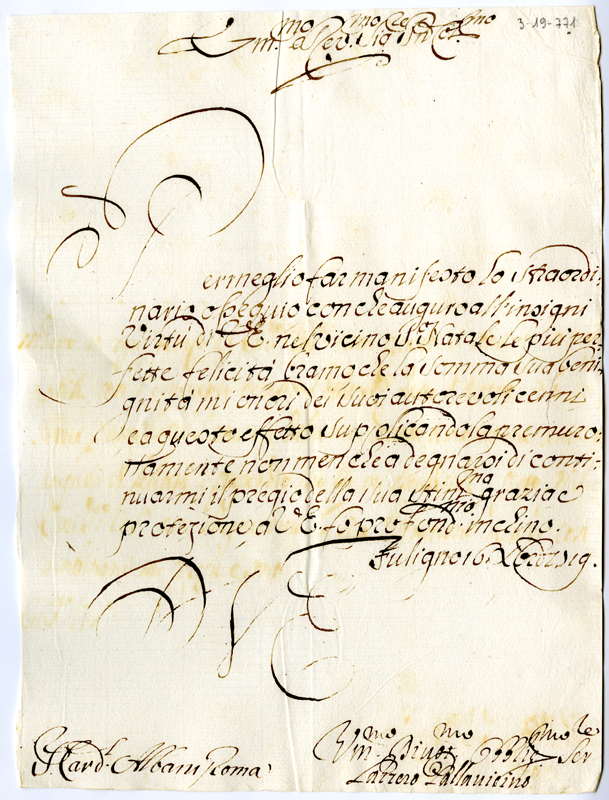 3-19-771
Em.mo e Rev.mo Sig.re Pñ Col.mo
Per meglio far manifesto lo straordi:
nario ossequio con che auguro all'insigni
Virtú di V.E. nel vicino S. Natale le piú per
fette felicitá bramo che la somma sua beni
gnitá mi onori dei suoi autorevoli cenni
e a questo effetto supplicandola premuro:
samente non men che a degnarsi di conti
nuarmi il pregio della sua stim.ma grazia e
protezione a V.E. fo profond.mo inchino.
Fuligno 16 Xbre 1719.
V E
S. Card.l Albani Roma
Um.mo Divot.mo Obblig.mo Ser.le
Lazzero Pallavicino